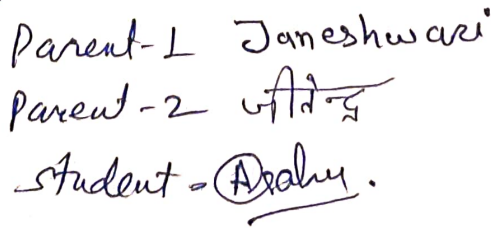 Parent-1 Janeshwari
Parent-2 जीतेन्द्र
student -